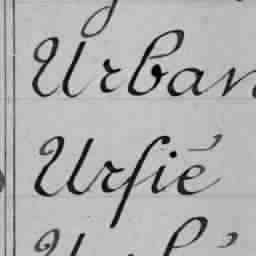 Urban
Ursié